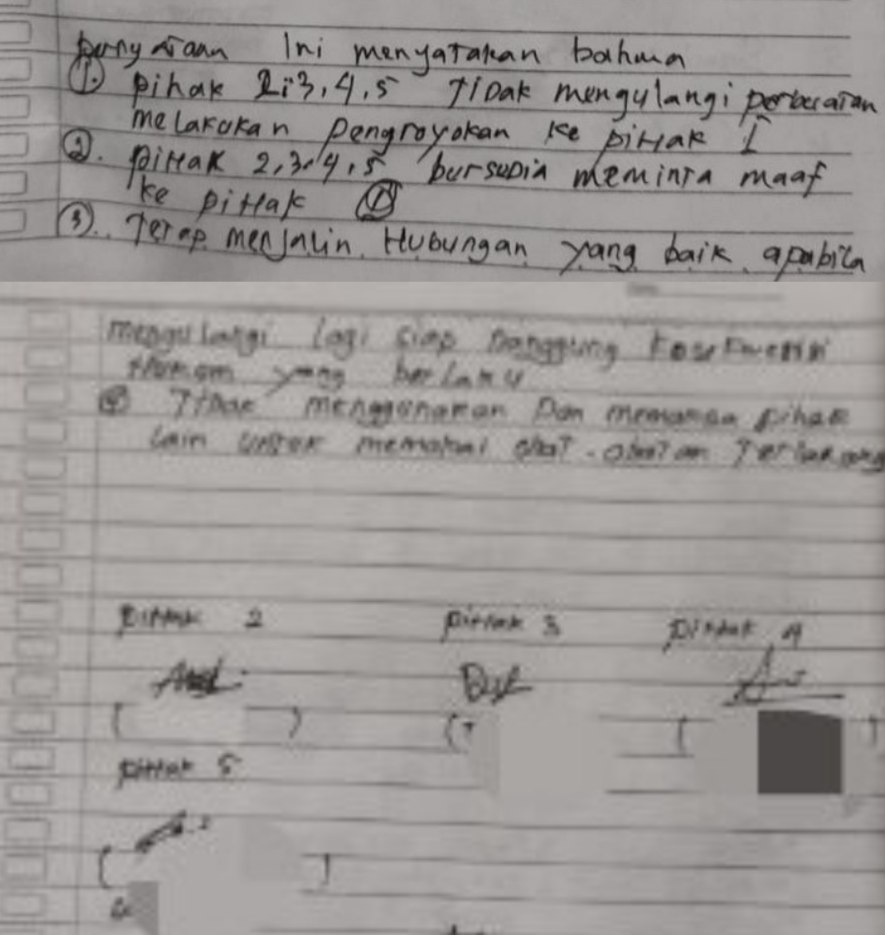 pernyataan Ini menyatakan bahwa
①. pihak 2,3,4,5 TIDak mengulangi perbuatan
melakukan pengroyokan ke piHak 1
②. piHak 2,3,4,5 bersedia meminta maaf
ke piHak ①
③. Tetap menjalin Hubungan yang baik apabila
mengulangi lagi siap Nanggung
Hukum yang berlaku
④ TIDak menggunakan Dan memaksa pihak
lain untuk memakai obat-obatan Terlarang
piHak 2 piHak 3 piHak 4
( ) ( ( )
piHak 5
( )